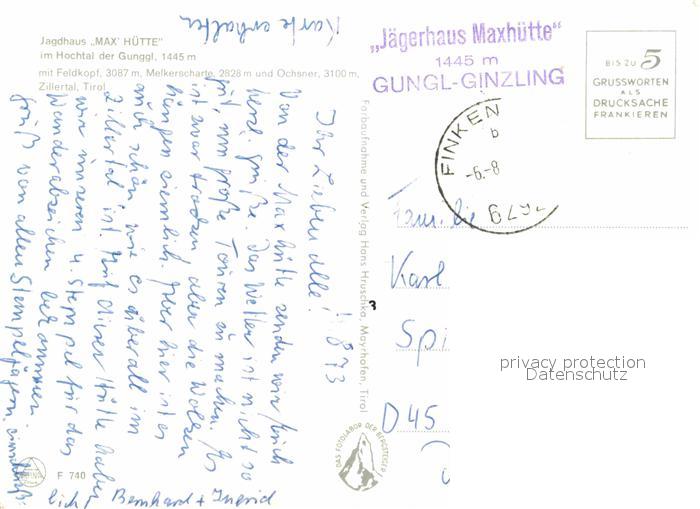 Jagdhaus „MAX' HÜTTE"
im Hochtal der Gunggl, 1445 m
mit Feldkopf, 3087 m, Melkerscharte, 2828 m und Ochsner, 3100 m,
Zillertal, Tirol
Karte erhalten
„Jägerhaus Maxhütte"
1445 m
GUNGL-GINZLING
BIS ZU 5
GRUSSWORTEN
ALS
DRUCKSACHE
FRANKIEREN
FINKEN
b
-6.-8
Ihr Lieben alle! 4.8.73
Von der Maxhütte senden wir Euch
herzl. Grüße. Das Wetter ist nicht so
gut, um große Touren zu machen. Es
ist zwar trocken, aber die Wolken
hängen ziemlich. Aber hier ist es
auch schön, wie es überall im
Zillertal ist. Auf dieser Hütte haben
wir unseren 4. Stempel für das
Wanderabzeichen bekommen.
Gruß von allen Stempeljägern, einschließ-
lich Bernhard + Ingrid
Farbaufnahme und Verlag Hans Hruschka, Mayrhofen, Tirol
Familie
Karl
Spi
D 45
privacy protection
Datenschutz
DAS FOTOLABOR DER BERGSTEIGER
F 740